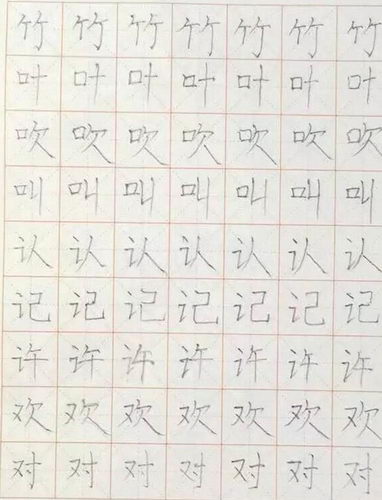 竹竹竹竹竹竹竹
叶叶叶叶叶叶叶
吹吹吹吹吹吹吹
叫叫叫叫叫叫叫
认认认认认认认
记记记记记记记
许许许许许许许
欢欢欢欢欢欢欢
对对对对对对对